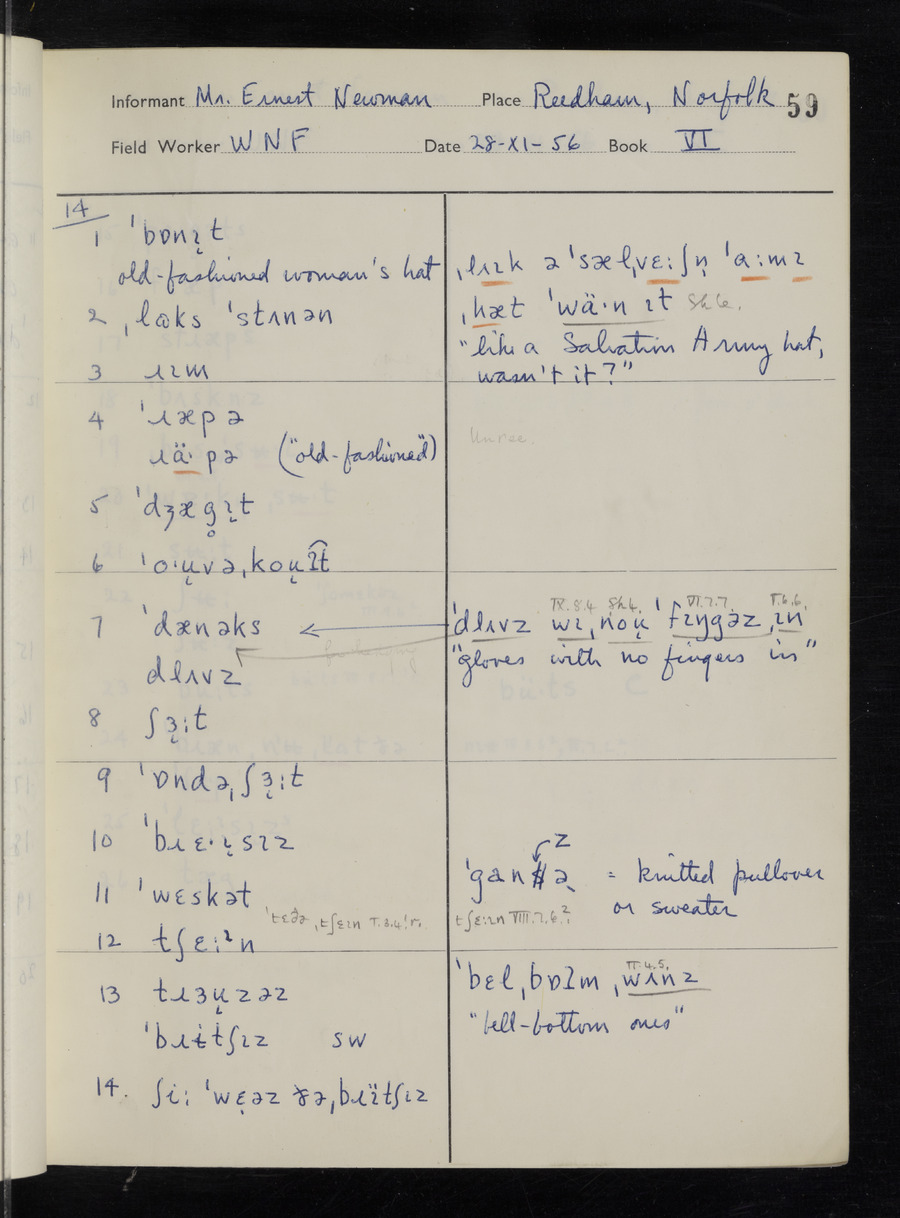 Informant Mr. Ernest Newman Place Reedham, Norfolk 59
Field Worker W N F Date 28-XI-56 Book VI
14
1 ˈbɒnɪ̣t
old-fashioned woman's hat
2 ˌlɒks ˈstʌnən
3 ɹɪm
4 ˈɹæpə
ɹä·pə ("old-fashioned")
5 ˈdʒæg̥ɪ̣t
6 ˈo·ụvəˌkoụʔ͡t
7 ˈdænəks
dlʌvz
8 ʃɜ̣ːt
9 ˈɒndəˌʃɜ̣ːt
10 ˈbɹɛ·ɪ̣sɪz
11 ˈwɛskət
12 tʃɛːɪn
13 tɹɜụzəz
ˈbɹɪtʃɪz SW
14. ʃiː ˈwɛ̣əz ðəˌbɹɪ̈tʃɪz
ˌlʌɪk ə ˈsælˌvɛːʃn̩ ˈɑːmɪ
ˌhæt ˈwä·n ɪt Sh 6.
"like a Salvation Army hat,
wasn't it?"
Unrec.
IX.8.4 Sh4. VI.7.7. V.6.6.
ˈdlʌvz wɪˌnoụ ˈfɪŋgəz ˌɪn
"gloves with no fingers in"
z
ˈganẓə = knitted pullover
or sweater
tʃɛːɪn VIII.7.6.²
VI.4.5.
ˈbɛlˌbɒʔmˌwʌnz
"bell-bottom ones"